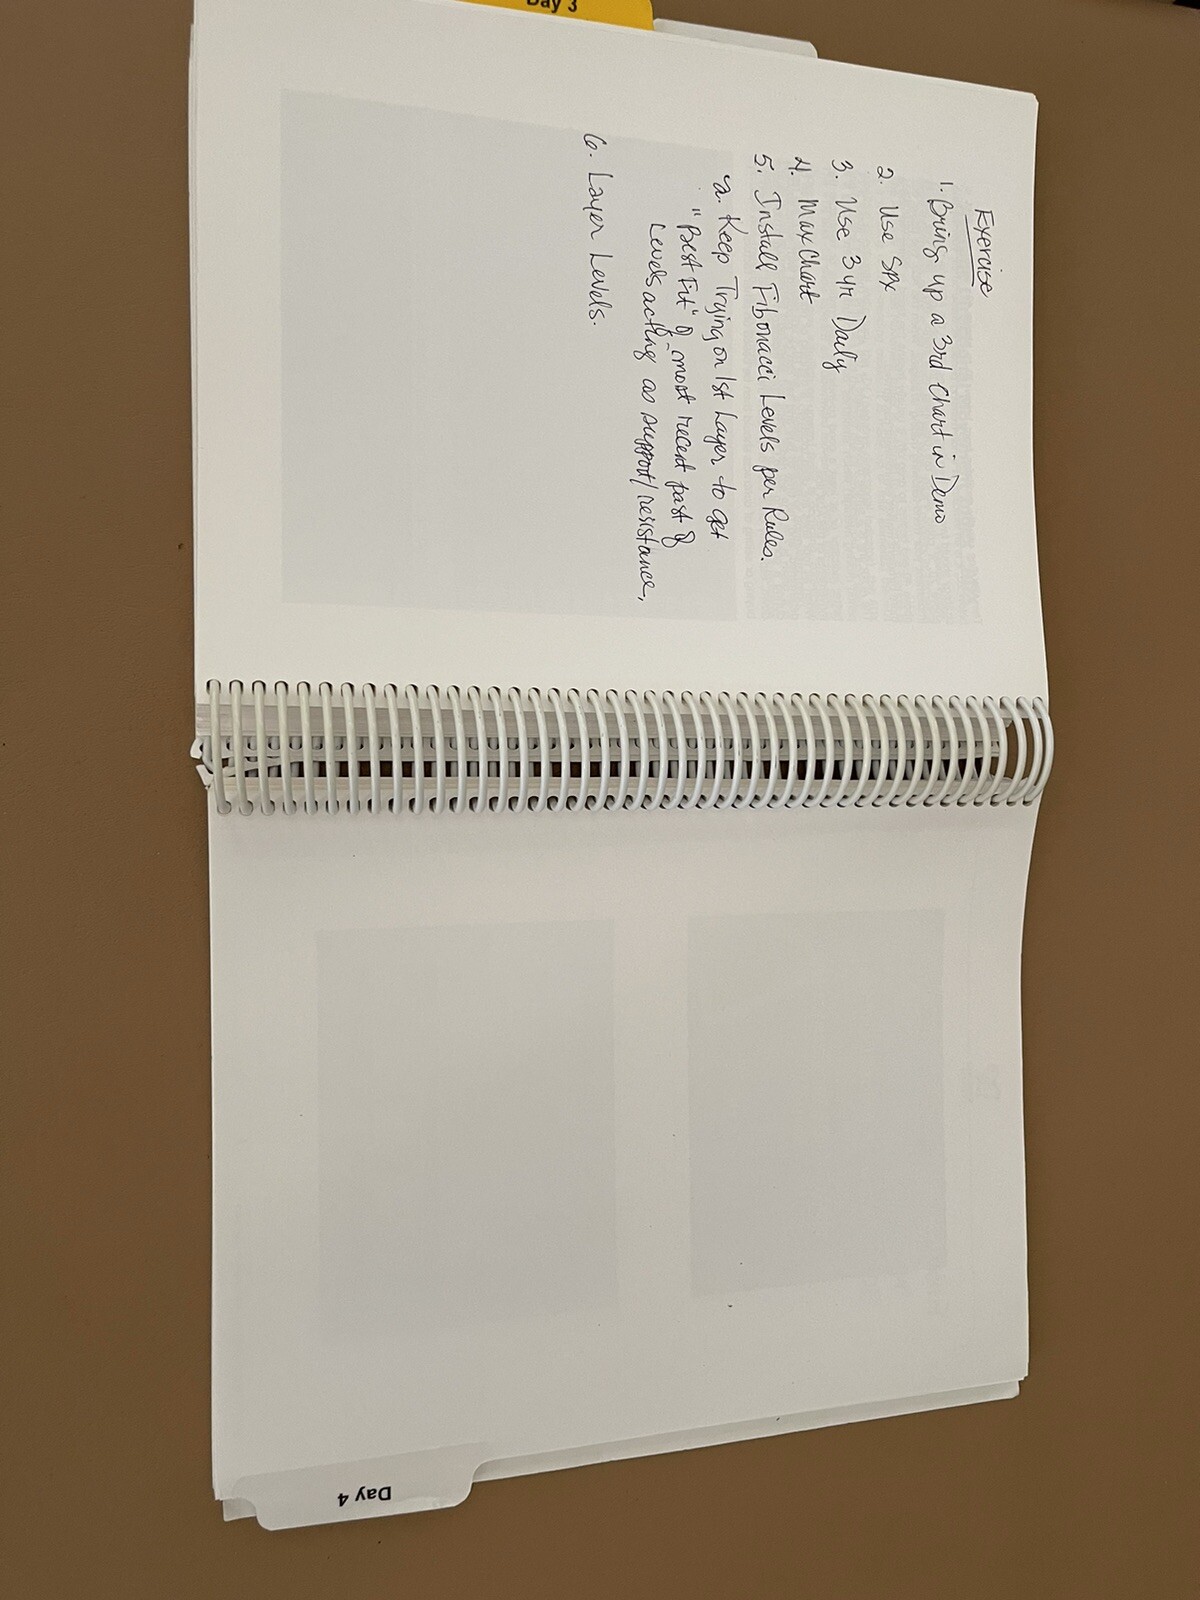 Day 3
Exercise
1. Bring up a 3rd Chart in Demo
2. Use SPX
3. Use 3 yr Daily
4. Max Chart
5. Install Fibonacci Levels per Rules.
a. Keep Trying on 1st Layer to get
"Best Fit" of most recent past of
Levels acting as support/resistance,
6. Layer Levels.
Day 4